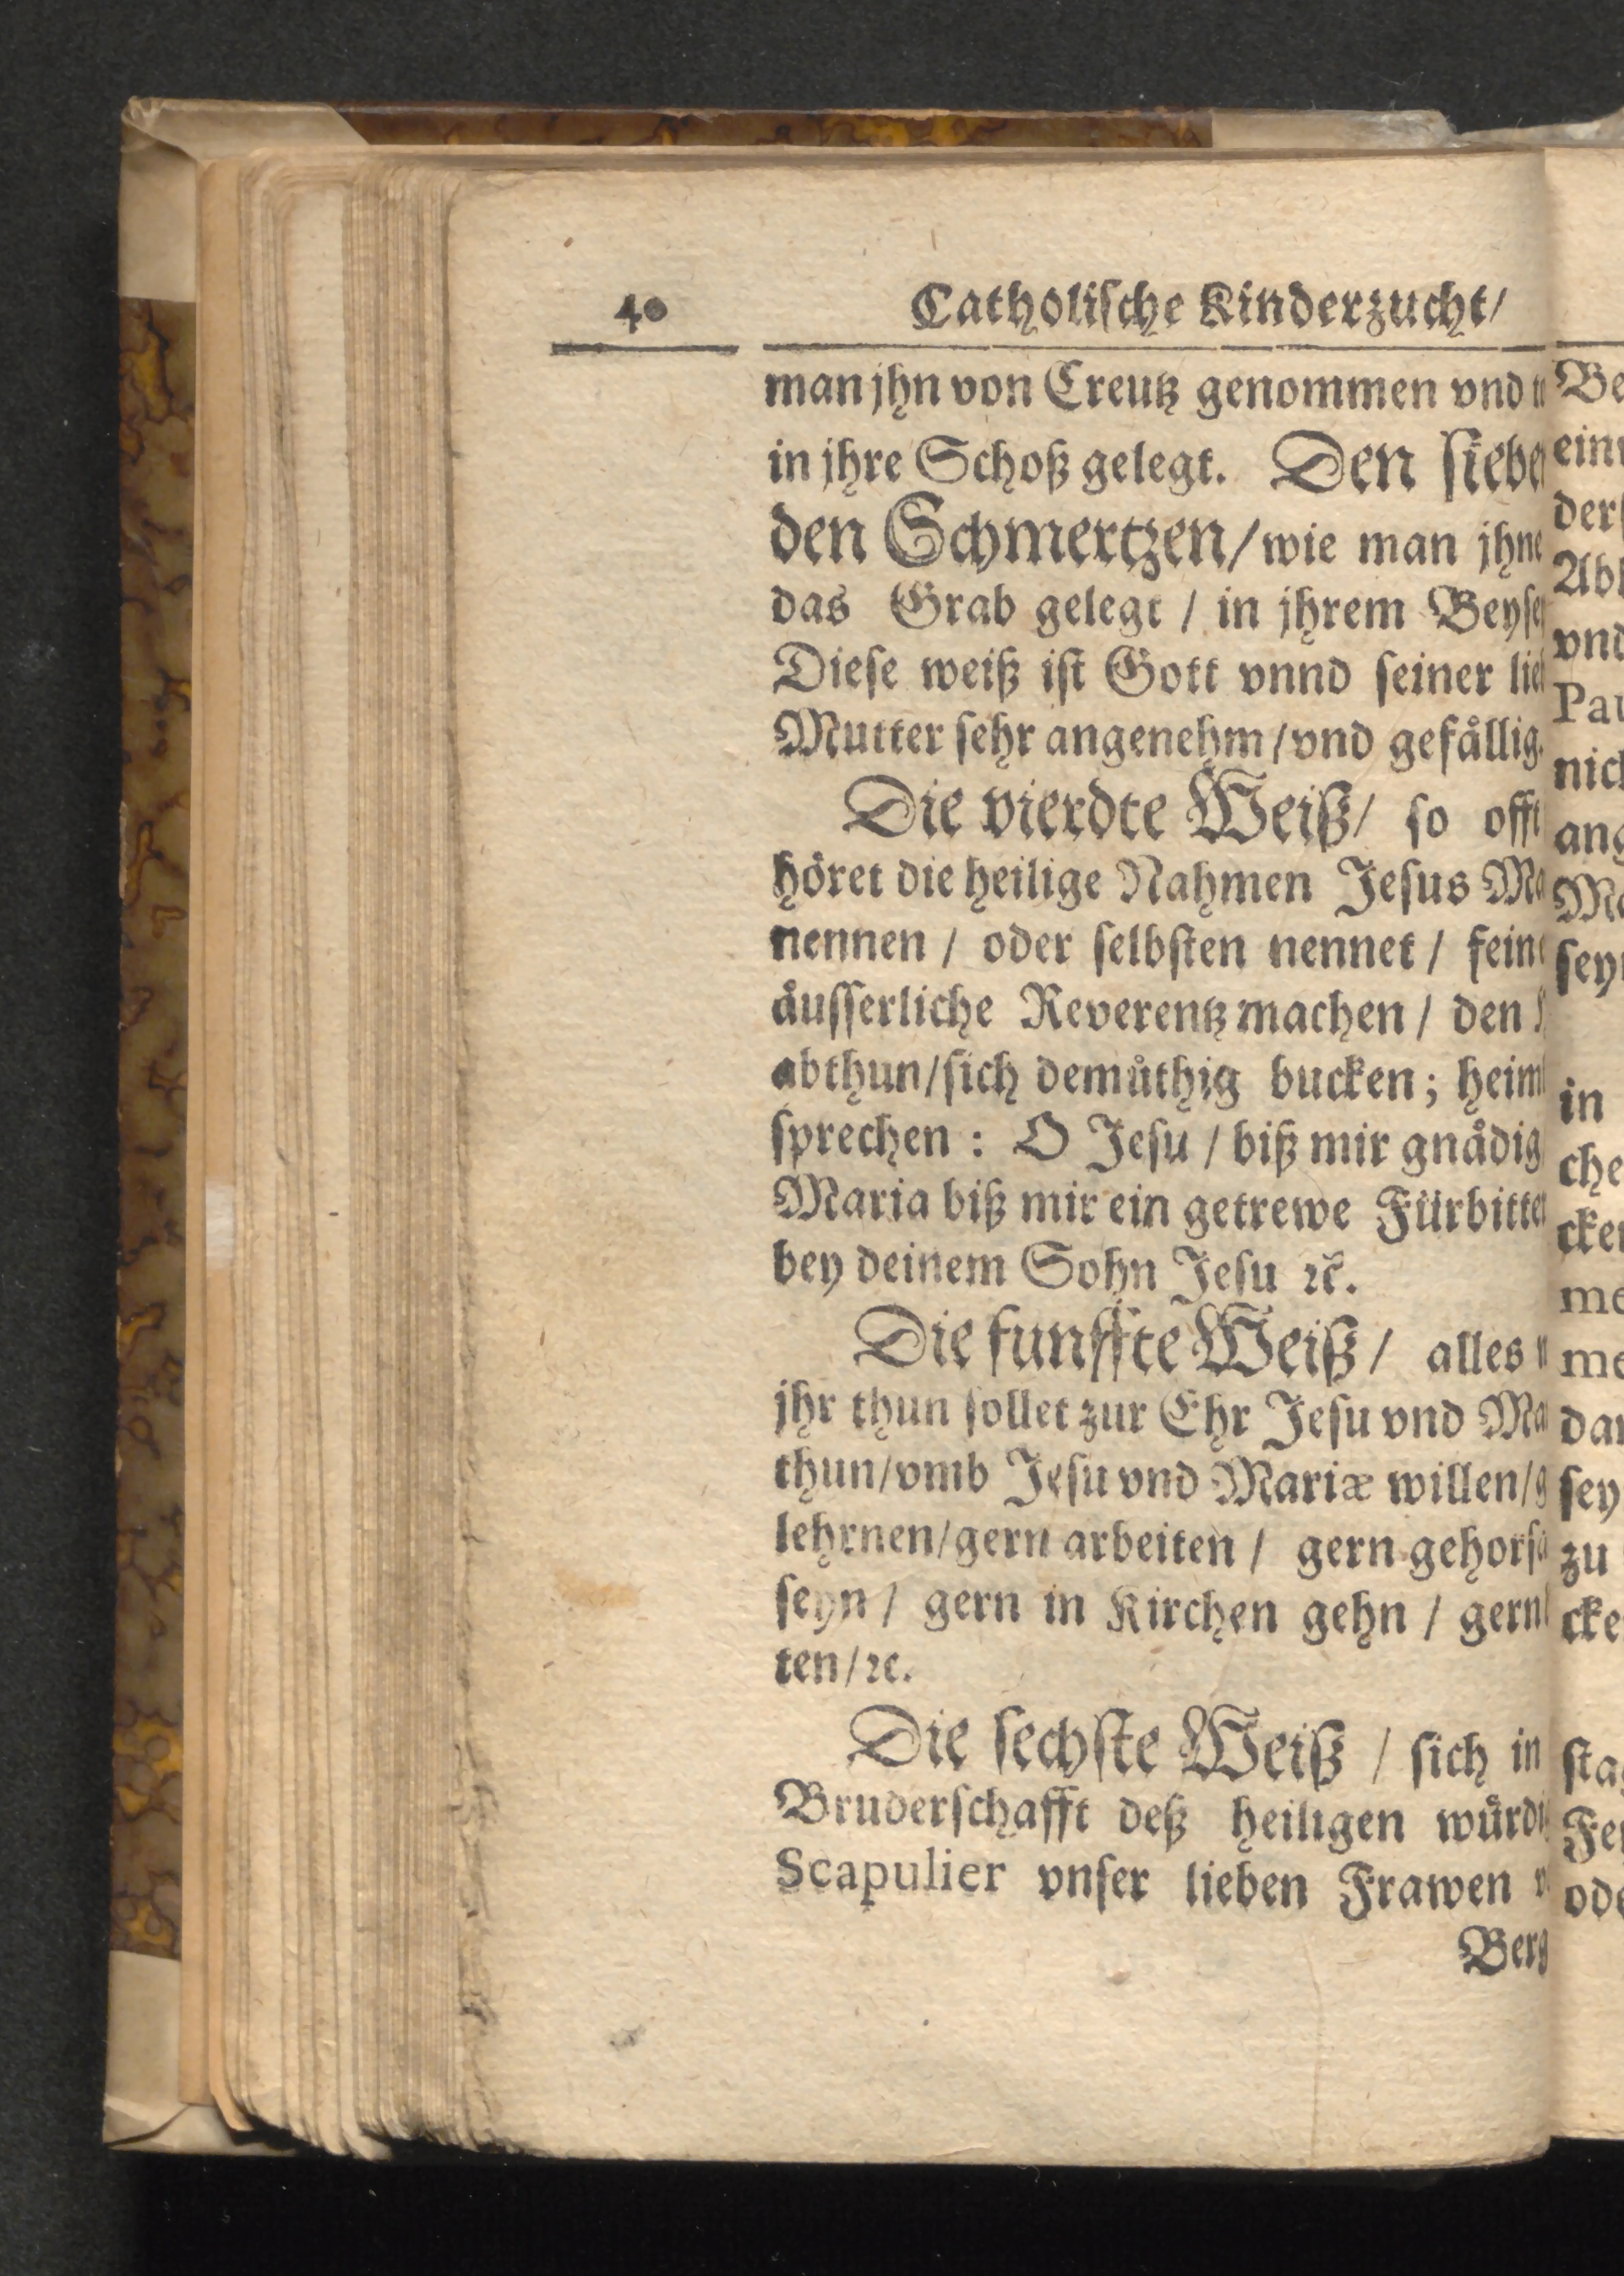 40 Catholische Kinderzucht/
man jhn von Creutz genommen vnd
in jhre Schoß gelegt. Den siebe
den Schmertzen/ wie man jhne
das Grab gelegt / in jhrem Beyse
Diese weiß ist Gott vnnd seiner lieb
Mutter sehr angenehm/vnd gefållig.
Die vierdte Weiß/ so offt
höret die heilige Nahmen Jesus Ma
nennen / oder selbsten nennet / fein
åusserliche Reverentz machen / den
abthun/sich demůthig bucken; heim
sprechen : O Jesu / biß mir gnådig
Maria biß mir ein getrewe Fürbitte
bey deinem Sohn Jesu ꝛc̃.
Die funffte Weiß / alles
jhr thun sollet zur Ehr Jesu vnd Ma
thun/vmb Jesu vnd Mariæ willen/g
lehrnen/gern arbeiten / gern gehorsa
seyn / gern in Kirchen gehn / gern
ten/ꝛc.
Die sechste Weiß / sich in
Bruderschafft deß heiligen wůrdi
Scapulier vnser lieben Frawen v
Berg
Be
ein
der
Ab
vnd
Pau
nich
ang
Ma
sey
in
che
cke
me
me
dar
sey
zu
cke
sta
Fe
ode